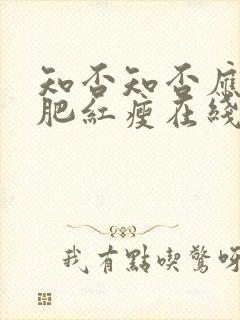 知否知否應
肥紅瘦在綫
我有點喫驚呀